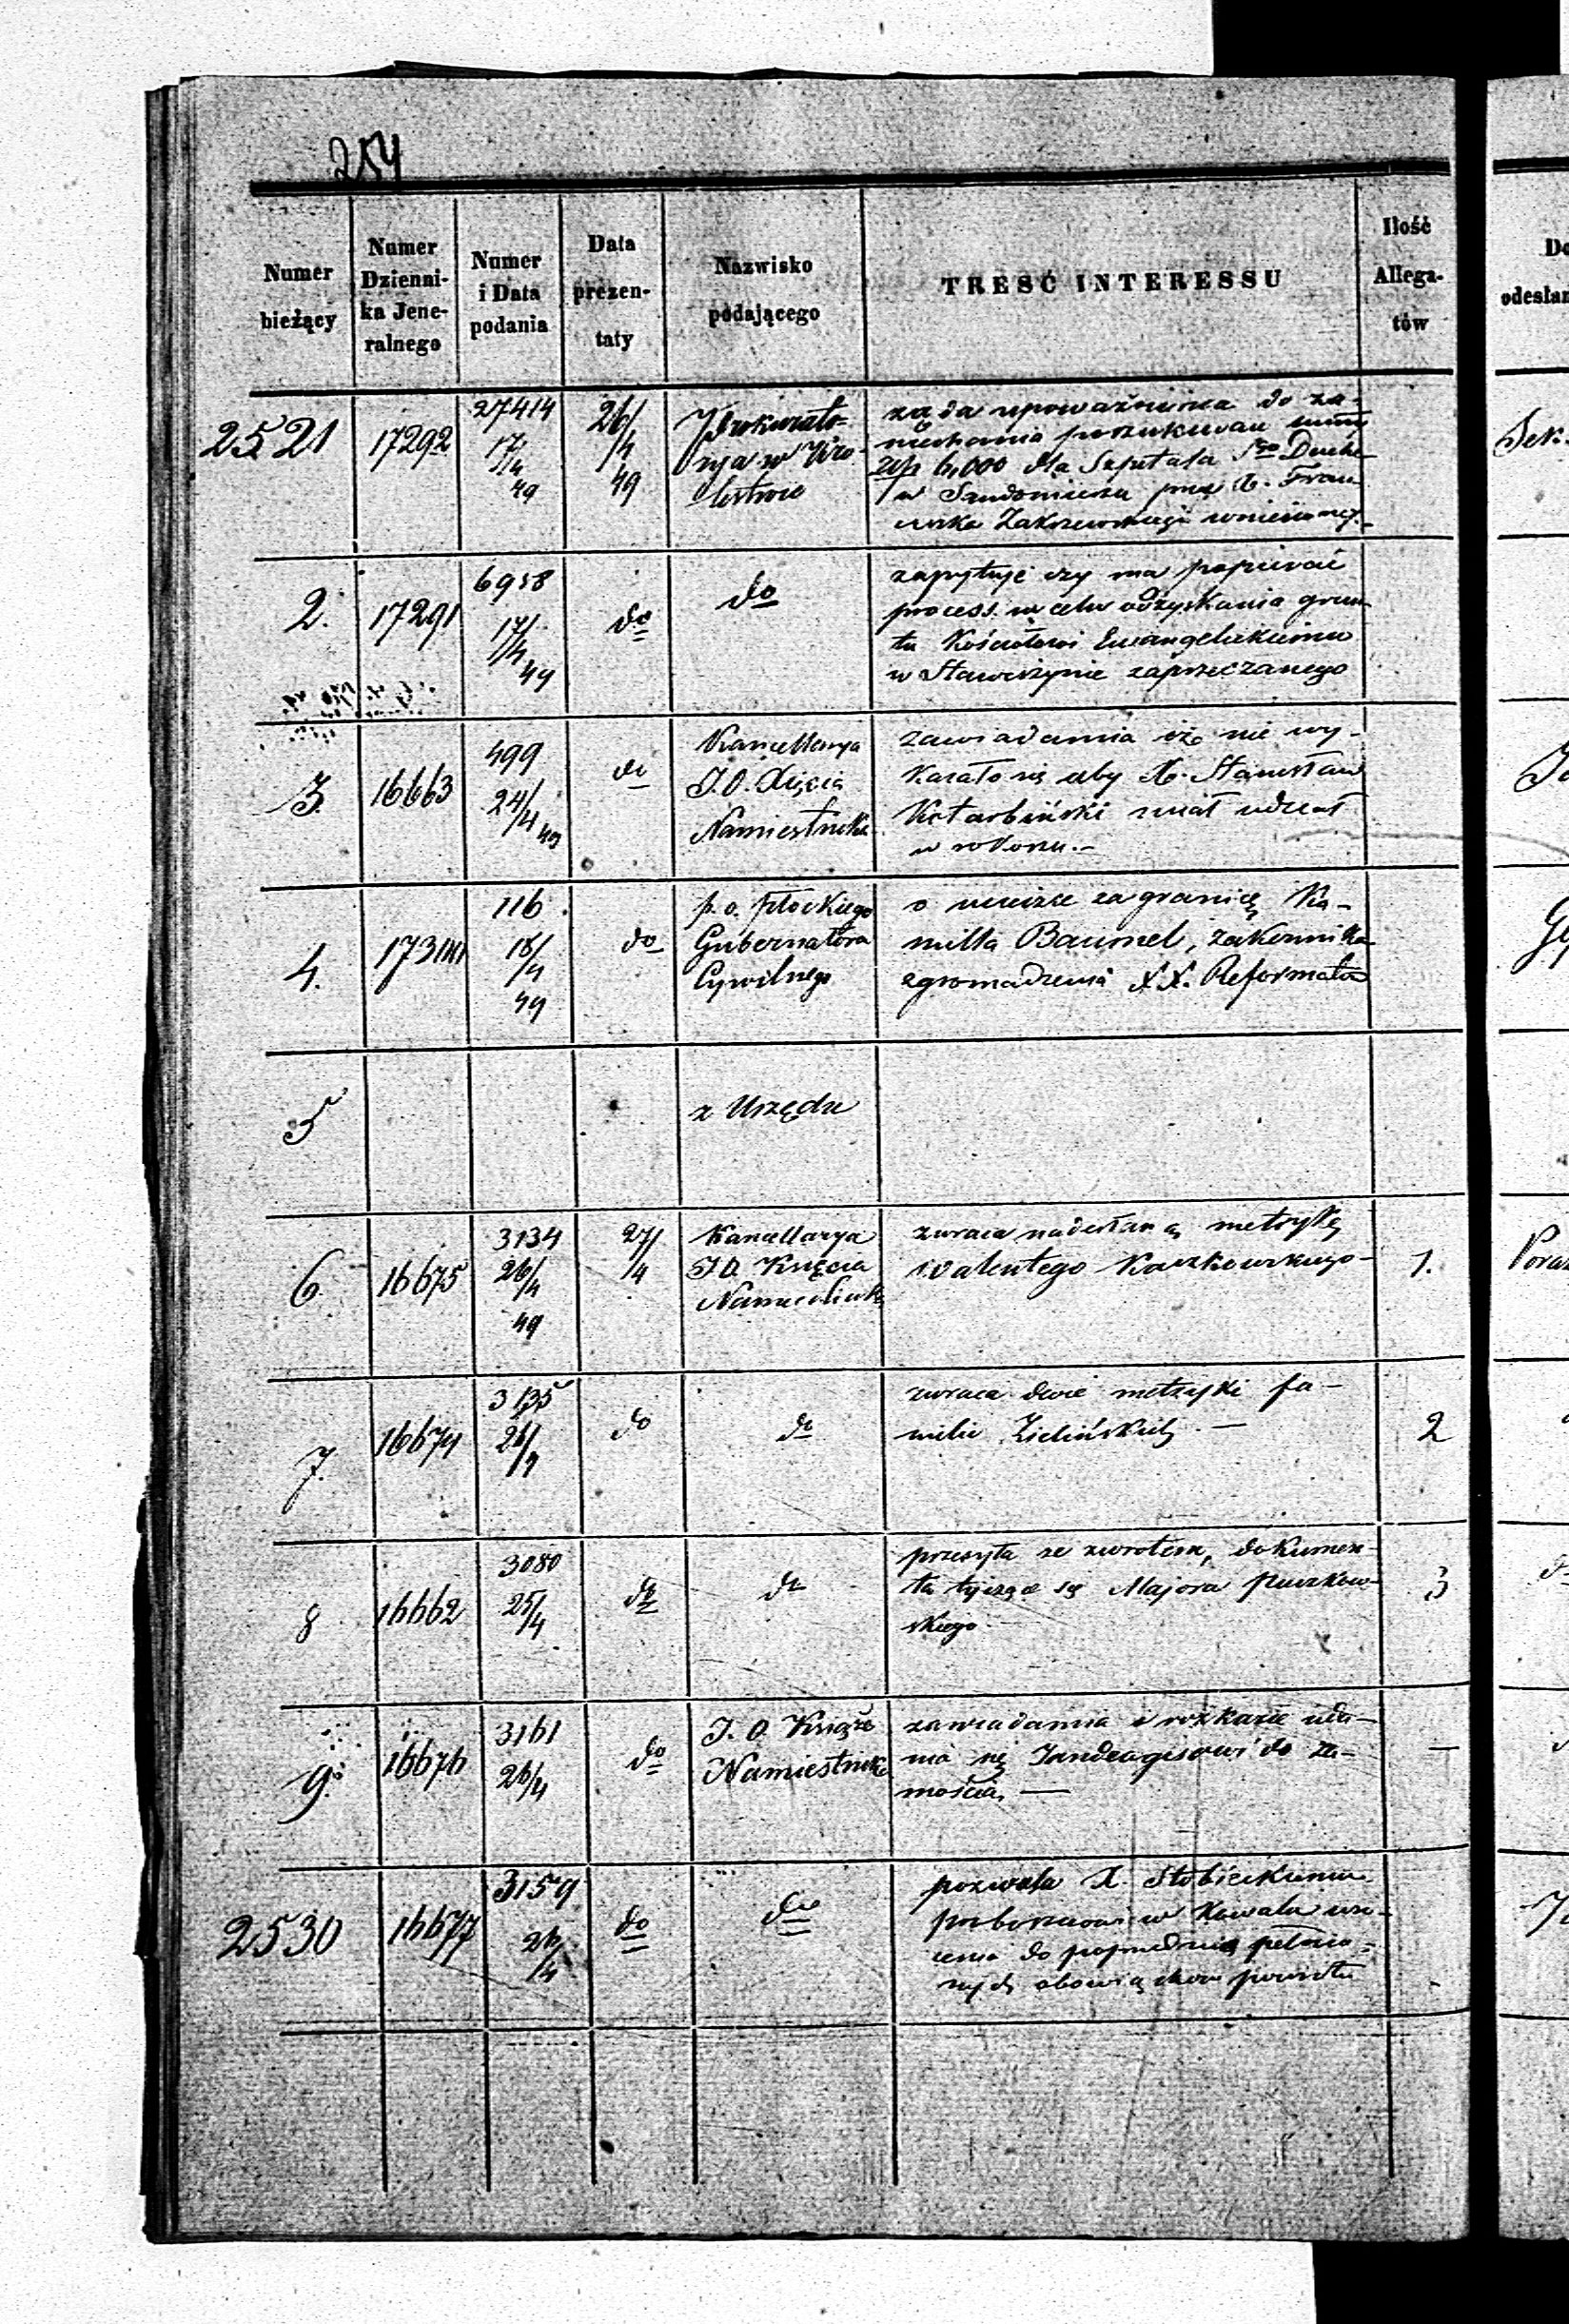 254
Numer bieżący
Numer Dzienni- ka Jene- ralnego
Numer i Data podania
Data prezen- taty
Nazwisko podającego
TRESC INTERESSU
Ilość Allega- tów
2521
17292
27414
17/4
49
26/4
49
Prokurato-
rya w Kró-
lestwie
żąda upoważnienia do za-
niechania poszukiwań summy
złp 6,000 dla Szpitala Sgo Ducha
w Sandomierzu przez X. Fran-
ciszka Zakrzewskiego wniesionej
2.
17291
6958
17/4
49
do
do
zapytuje czy ma popierać
process. w celu odzyskania grun-
tu Kościołowi Ewangelickiemu
w Stawiszynie zaprzeczanego
3.
16663
499
24/4 49
do
Kancellarya
J.O. Xięcia
Namiestnika
zawiadamia iż nie wy-
kazało się aby X. Stanisław
Kotarbiński miał udział
w rokoszu.-
4.
116
18/4
49
do
p.o. Płockiego
Gubernatora
Cywilnego
o ucieczce za granicę Ka-
milla Baumel, zakonnika
zgromadzenia X.X. Reformatów
5
z Urzędu
6
16675
3134
26/4
49
27/4
Kancellarya
J O. Księcia
Namiestnika
zwraca nadesłaną metrykę
Walentego Kaczkowskiego-
1.
7.
16674
3135
26/4
do
do
zwraca dwie metryki fa-
milii Zielińskich. —
2
8
16662
3080
25/4
do
do
przesyła ze zwrotem, dokumen-
ta tyczące się Majora
skiego
3
9.
16676
3161
26/4
do
J. O. Książe
Namiestnik
zawiadamia o rozkazie uda-
nia się do Za-
mościa, —
—
2530
16677
3159
26/4
do
do
pozwala X. Słobickiemu
w Kowalu wró-
cenia do poprzednio pełnio-
nych obowiązków
Sek.
Do
odesłan